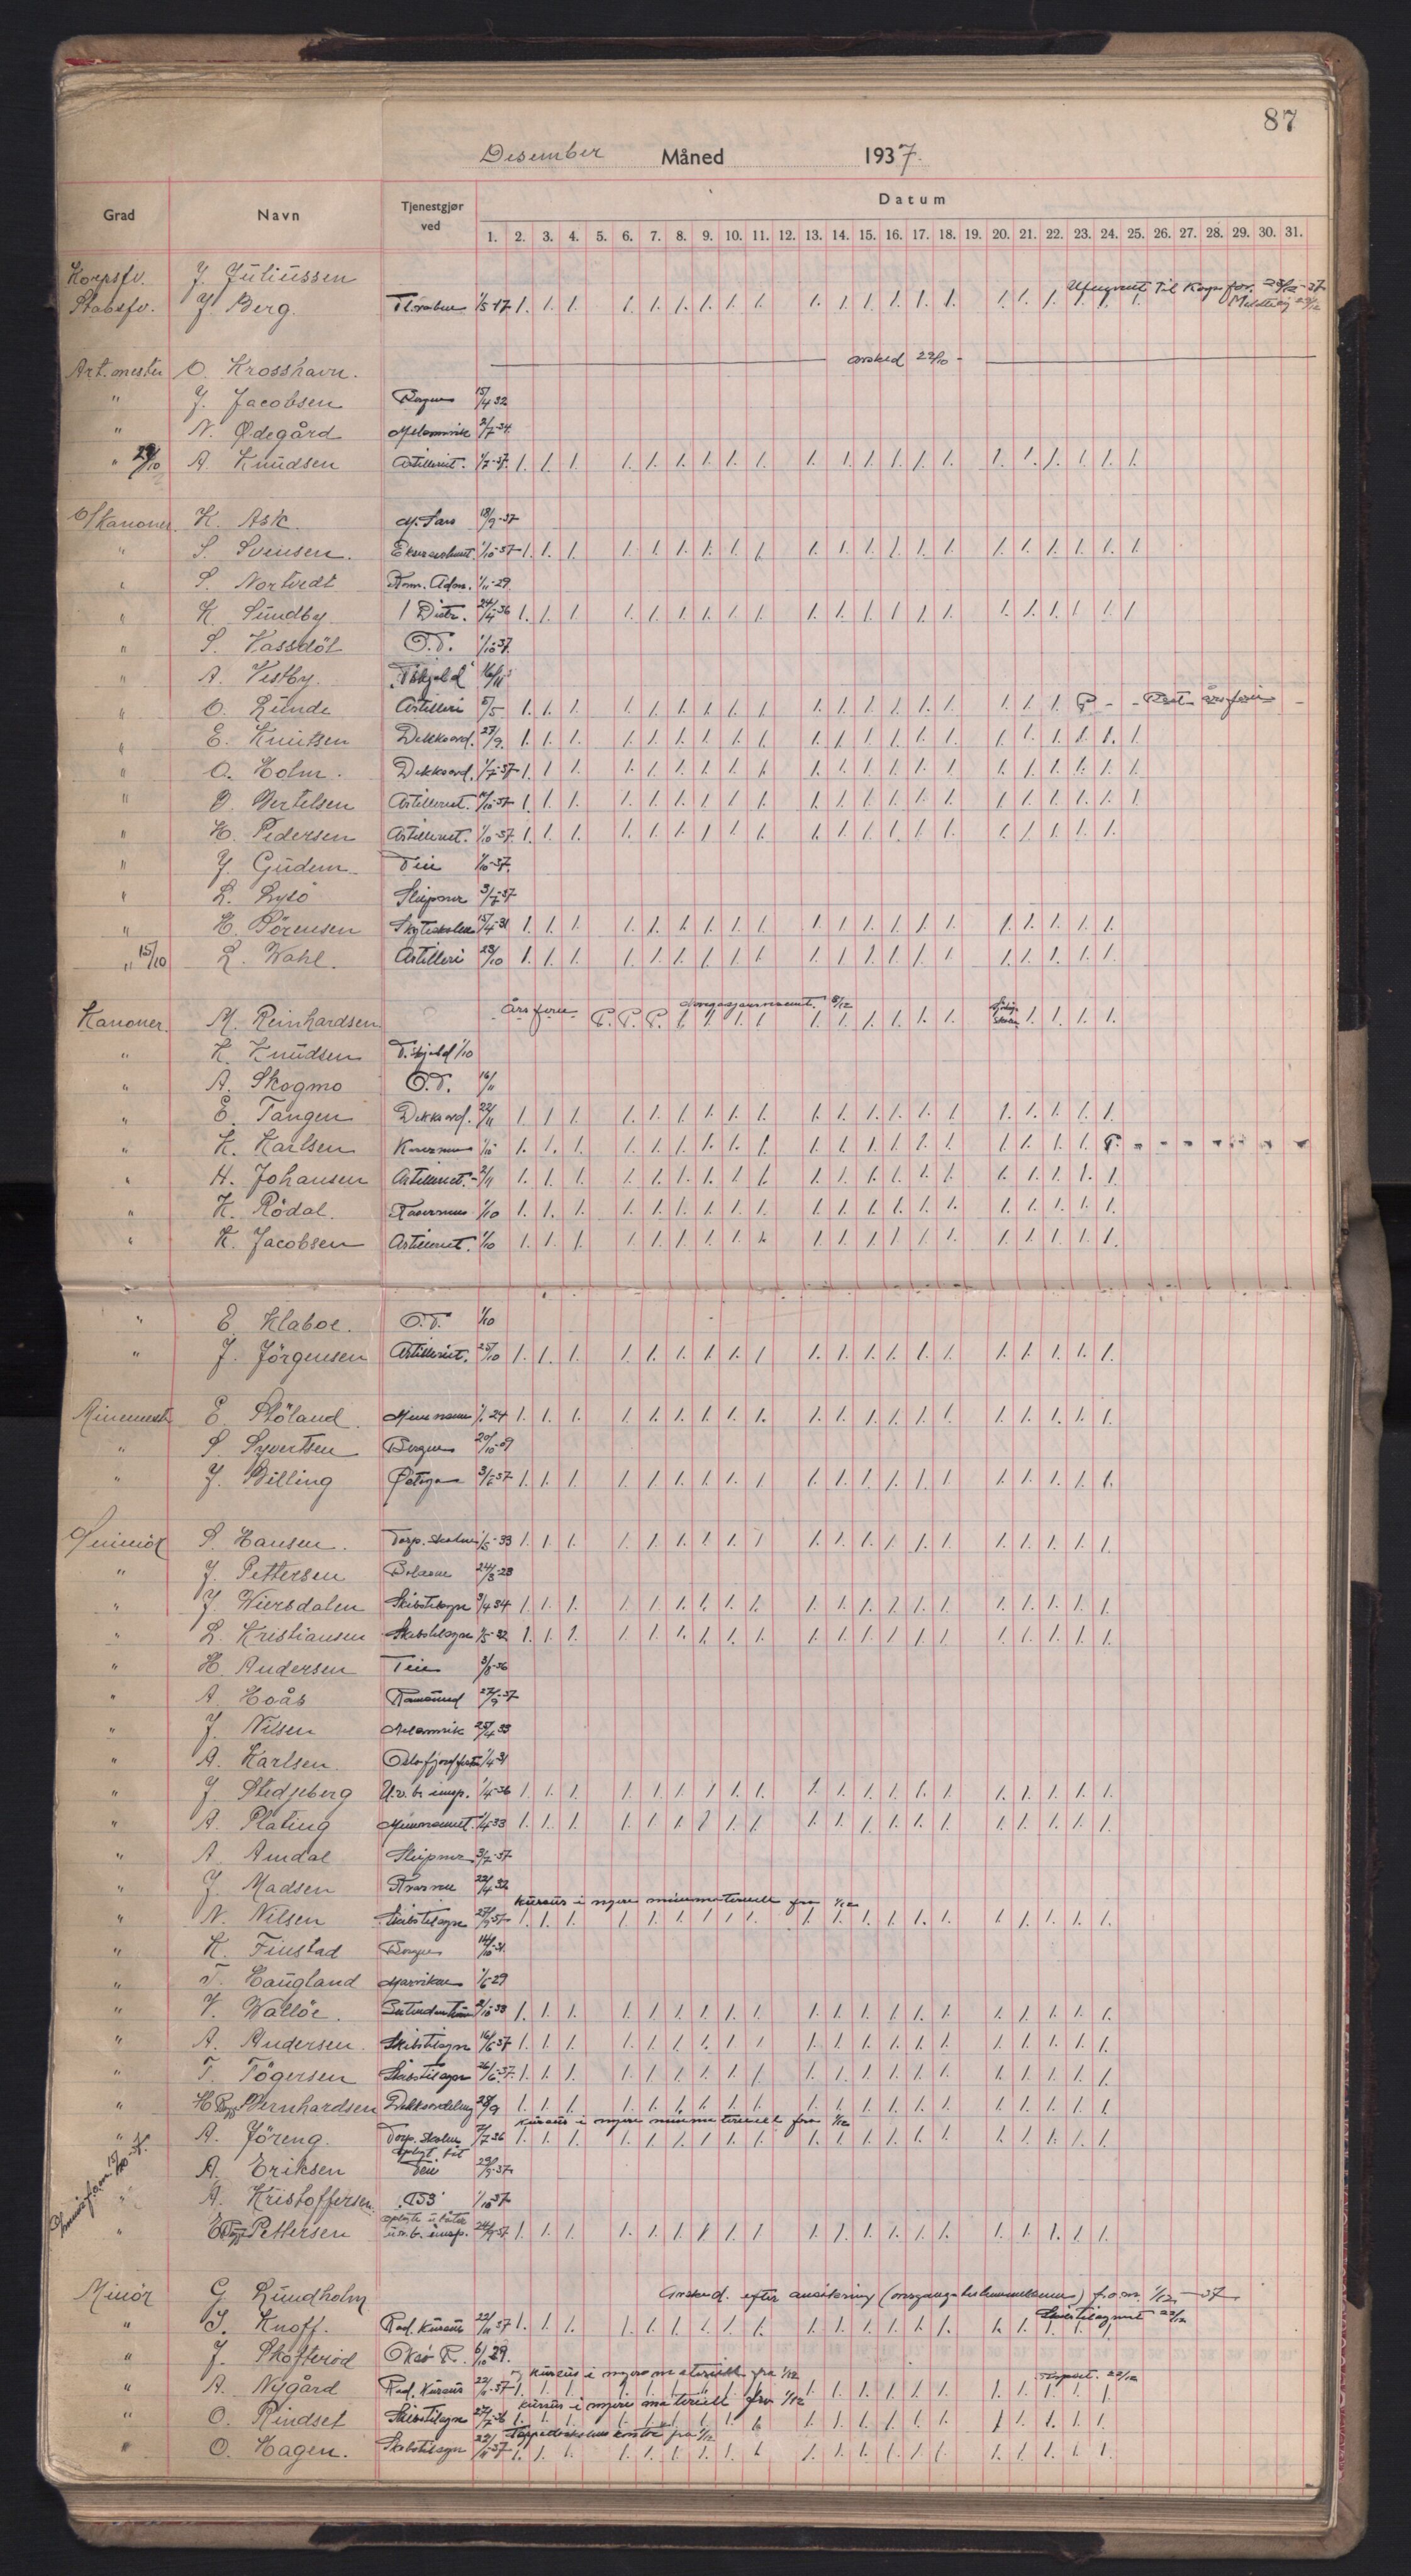 87
Desember Måned 1937.
Grad Navn Tjenestgjør ved Datum
1. 2. 3. 4. 5. 6. 7. 8. 9. 10. 11. 12. 13. 14. 15. 16. 17. 18. 19. 20. 21. 22. 23. 24. 25. 26. 27. 28. 29. 30. 31.
Korpsfv. J. Juliussen
Stabsfv. J. Berg. 1. 1. 1. 1. 1. 1. 1. 1. 1. 1. 1. 1. 1. 1. 1. 1. 1. 1. 1. 1. 1.
Art. mester O. Krosshavn. Avsked 29/10 -
" J. Jacobsen Bergen 15/4 32
" N. Ødegård Melsomvik 2/7-34.
" 29/10 A. Knudsen Artilleriet. 1/7-37. 1. 1. 1. 1. 1. 1. 1. 1. 1. 1. 1. 1. 1. 1. 1. 1. 1. 1. 1. 1. 1.
O/Kanoner. K. Ask. M. Sars 18/9-37
" S. Svensen. 1/10-37 1. 1. 1. 1. 1. 1. 1. 1. 1. 1. 1. 1. 1. 1. 1. 1. 1. 1. 1. 1. 1.
" S. Nortvedt Kom. Adm. 1/11-29
" K. Sundby 1 Distr. 24/4-36 1. 1. 1. 1. 1. 1. 1. 1. 1. 1. 1. 1. 1. 1. 1. 1. 1. 1. 1. 1. 1.
" S. Vassdöl O.T. 1/10-37.
" A. Vestby. "Tskjold" 16/11
" O. Lunde Artilleri 5/5 1. 1. 1. 1. 1. 1. 1. 1. 1. 1. 1. 1. 1. 1. 1. 1. 1. 1. P - - Rest årsferie -
" E. Knutsen Dekksavd. 27/9. 1. 1. 1. 1. 1. 1. 1. 1. 1. 1. 1. 1. 1. 1. 1. 1. 1. 1. 1. 1. 1.
" O. Holm. Dekksavd. 1/7-37 1. 1. 1. 1. 1. 1. 1. 1. 1. 1. 1. 1. 1. 1. 1. 1. 1. 1. 1. 1. 1.
" B. Bertelsen Artilleriet. 1. 1. 1. 1. 1. 1. 1. 1. 1. 1. 1. 1. 1. 1. 1. 1. 1. 1. 1. 1. 1.
" H. Pedersen Artilleriet. 1/10-37. 1. 1. 1. 1. 1. 1. 1. 1. 1. 1. 1. 1. 1. 1. 1. 1. 1. 1. 1. 1.
" J. Gudem Teie 1/10-37.
" L. Lysö Sleipner 3/7-37
" H. Sörensen Skyteskolen 15/4-31 1. 1. 1. 1. 1. 1. 1. 1. 1. 1. 1. 1. 1. 1. 1. 1. 1. 1. 1. 1.
" 15/10 L. Wahl. Artilleri 28/10 1. 1. 1. 1. 1. 1. 1. 1. 1. 1. 1. 1. 1. 1. 1. 1. 1. 1. 1. 1.
Kanoner. M. Reinhardsen Årsferie P. P. P. 1. 1. 1. 1. 1. 1. 1. 1. 1. 1. 1. 1. 1. 1.
" K. Knudsen T.skjold 1/10
" A. Skogmo O.T. 16/11
" E. Tangen Dekksavd. 22/11 1. 1. 1. 1. 1. 1. 1. 1. 1. 1. 1. 1. 1. 1. 1. 1. 1. 1. 1. 1.
" K. Karlsen 1. 1. 1. 1. 1. 1. 1. 1. 1. 1. 1. 1. 1. 1. 1. 1. 1. 1. 1. P. " " " " " " "
" H. Johansen Artilleriet. 2/11 1. 1. 1. 1. 1. 1. 1. 1. 1. 1. 1. 1. 1. 1. 1. 1. 1. 1. 1. 1.
" K. Rödal. 1/10 1. 1. 1. 1. 1. 1. 1. 1. 1. 1. 1. 1. 1. 1. 1. 1. 1. 1. 1. 1.
" K. Jacobsen Artilleriet. 1/10 1. 1. 1. 1. 1. 1. 1. 1. 1. 1. 1. 1. 1. 1. 1. 1. 1. 1. 1. 1.
" E. Klaboe. O.T. 1/10
" J. Jörgensen Artilleriet. 25/10 1. 1. 1. 1. 1. 1. 1. 1. 1. 1. 1. 1. 1. 1. 1. 1. 1. 1. 1. 1.
Minemest. E. Stöland. 1. 1. 1. 1. 1. 1. 1. 1. 1. 1. 1. 1. 1. 1. 1. 1. 1. 1. 1. 1.
" S. Syvertsen Bergen 20/10-09
" J. Billing 1. 1. 1. 1. 1. 1. 1. 1. 1. 1. 1. 1. 1. 1. 1. 1. 1. 1. 1. 1.
S. Hansen. Torp. skolen 1/5-33 1. 1. 1. 1. 1. 1. 1. 1. 1. 1. 1. 1. 1. 1. 1. 1. 1. 1. 1. 1.
" J. Pettersen Bolærne 24/3-23
" J. Wiersdalen Skibstilsyn 3/4 34 1. 1. 1. 1. 1. 1. 1. 1. 1. 1. 1. 1. 1. 1. 1. 1. 1. 1. 1. 1.
" L. Kristiansen Skibstilsyn 1/5-32 1. 1. 1. 1. 1. 1. 1. 1. 1. 1. 1. 1. 1. 1. 1. 1. 1. 1. 1. 1.
" H. Andersen Teie 3/8-36
" A. Hoås 27/9-37
" J. Nilsen Melsomvik 25/4 33
" A. Karlsen. Oslofjord 1/4-31
" J. Stedjeberg U.v.b. insp. 1/4-36 1. 1. 1. 1. 1. 1. 1. 1. 1. 1. 1. 1. 1. 1. 1. 1. 1. 1. 1. 1.
" A. Plating Minevesenet. 1/4-33 1. 1. 1. 1. 1. 1. 1. 1. 1. 1. 1. 1. 1. 1. 1. 1. 1. 1. 1. 1.
" A. Amdal Sleipner 3/7-37
" J. Madsen 22/4 32
kursus i nyere minemateriell fra 1/12
" N. Nilsen Skibstilsyn 27/9-37 1. 1. 1. 1. 1. 1. 1. 1. 1. 1. 1. 1. 1. 1. 1. 1. 1. 1. 1. 1.
" K. Finstad Bergen 14/10-31.
" T. Haugland Marvika 1/6-29
" V. Wallöe. 1. 1. 1. 1. 1. 1. 1. 1. 1. 1. 1. 1. 1. 1. 1. 1. 1. 1. 1. 1.
" A. Andersen. Skibstilsyn 16/6-37 1. 1. 1. 1. 1. 1. 1. 1. 1. 1. 1. 1. 1. 1. 1. 1. 1. 1. 1. 1.
" T. Tögersen Skibstilsyn 26/6-37. 1. 1. 1. 1. 1. 1. 1. 1. 1. 1. 1. 1. 1. 1. 1. 1. 1. 1. 1. 1.
" H Bernhardsen Dekksavdeling 28/9 1. 1. 1. 1. 1. 1. 1. 1. 1. 1. 1. 1. 1. 1. 1. 1. 1. 1. 1. 1.
kursus i nyere minemateriell fra 1/12
" A. Jöreng. Torp. skolen 7/7 36 1. 1. 1. 1. 1. 1. 1. 1. 1. 1. 1. 1. 1. 1. 1. 1. 1. 1. 1. 1.
A. Eriksen Teie 29/9-37.
" A. Kristoffersen. "B3" 1/10 37
" E Pettersen u.v.b. insp. 24/9-37 1. 1. 1. 1. 1. 1. 1. 1. 1. 1. 1. 1. 1. 1. 1. 1. 1. 1. 1. 1.
Minör G. Lundholm Avsked efter ansökning f.o.m. 1/12 - 37
" S. Knoff. Rad. Kursus 22/11 37 1. 1. 1. 1. 1. 1. 1. 1. 1. 1. 1. 1. 1. 1. 1. 1. 1. 1. 1. 1.
" J. Skofteröd Oksö R. 6/10 29.
kursus i nyere materiell fra 1/12
" A. Nygård Rad. Kursus 22/11-37 1. 1. 1. 1. 1. 1. 1. 1. 1. 1. 1. 1. 1. 1. 1. 1. 1. 1. 1. 1.
kursus i nyere materiell fra 1/12
" O. Rindset Skibstilsyn 27/7-36 1. 1. 1. 1. 1. 1. 1. 1. 1. 1. 1. 1. 1. 1. 1. 1. 1. 1. 1. 1.
Torpedoskolens kontor fra 1/12
" O. Hagen. Skibstilsyn 22/11-37 1. 1. 1. 1. 1. 1. 1. 1. 1. 1. 1. 1. 1. 1. 1. 1. 1. 1. 1. 1.